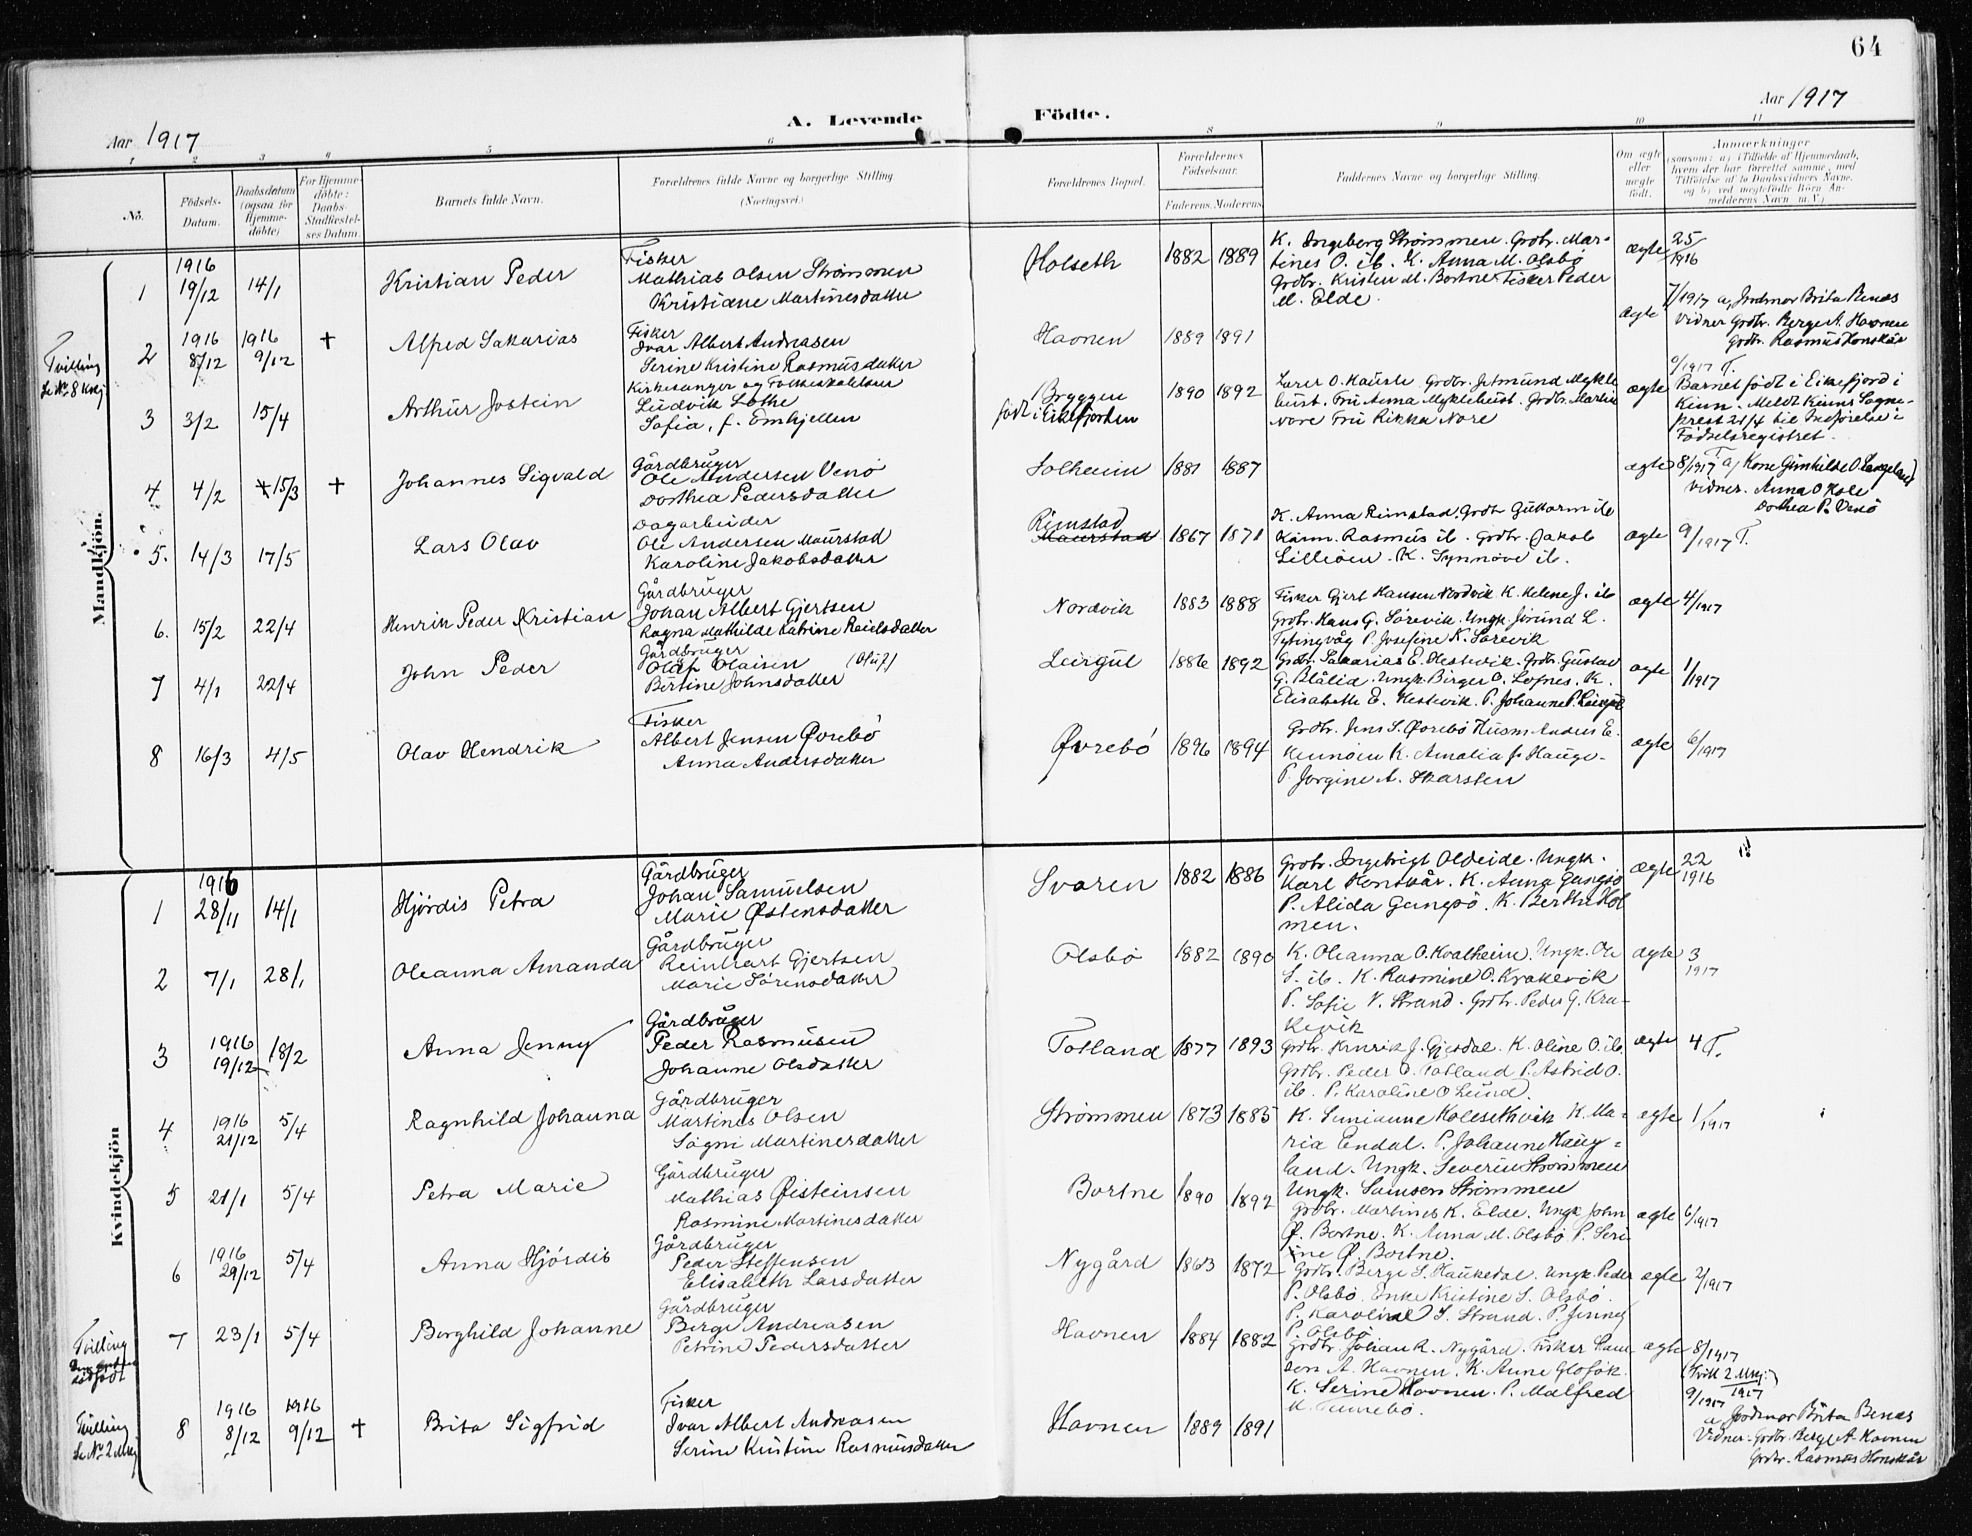 64
Aar 1917
A. Levende Födte.
Aar 1917
1 2 3 4 5 6 8 9 10 11
No. Födsels-Datum. Daabsdatum (ogsaa for Hjemme-döbte) For Hjemme-döbte: Daabs-Stadfæstel-ses Datum. Barnets fulde Navn. Forældrenes fulde Navne og borgerlige Stilling (Næringsvei.) Forældrenes Bopæl. Forældrenes Födselsaar. Faderens. Moderens. Faddernes Navne og borgerlige Stilling. Om ægte eller uægte födt. Anmærkninger
(saasom: a) i Tilfælde af Hjemmedaab, hvem der har forrettet samme, med Tilföielse af to Daabsvidners Navne, og b) ved uægtefödte Börn An-melderens Navn m.V.)
Mandkjön.
1 1916 19/12 14/1 Kristian Peder
Fisker
Mathias Olsen Strömmen
Kristiane Martinesdatter
Holseth 1882 1889
K. Ingeberg Strömmen. Grdbr. Mar-
tines O. ib. K. Anna M. Olsbö
Grdbr. Kristen M. Bortne. Fisker Peder
M. Elde.
ægte 25/1916
Tvilling
Se Nr. 8 Kvkj
2 1916 8/12 1916 9/12 + Alfred Sakarias
Fisker
Ivar Albert Andreasen
Serine Kristine Rasmusdatter
Havnen 1889 1891
ægte 7/1917 a, Jordmor Brita Benæs
Vidner Grdbr. Berge A. Havnen
Grdbr. Rasmus Honskår
3 3/2 15/4 Arthur Jostein
Kirkesanger og Folkeskolelærer
Ludvik Lothe
Sofia, f. Emhjellen
Bryggen
født i Eikefjorden
1890 1892
Lærer O. Hauste Grdbr. Jetmund Mykle
bust. Fru Anna Myklebust. Grdbr. Martin
Nore Fru Rikka Nore
ægte /1917 T.
Barnet født i Eikefjord i
Kinn. Meldt Kinns Sogne-
prest 21/4 til Indførelse i
Fødselsregistret.
4 4/2 15/3 + Johannes Sigvald
Gårdbruger
Ole Andersen Venö
Dorthea Pedersdatter
Solheim 1881 1887
ægte 8/1917 T. a, Kone Gunhilde O Langeland
Vidner. Anna O Hole
Dothea P. Venö
5. 14/3 17/5 Lars Olav
Dagarbeider
Ole Andersen Maurstad
Karoline Jakobsdatter
Rimstad
Maurstad
1867 1871
K. Anna Rimstad. Grdbr Guttorm ib
Rasmus ib. Grdbr. Jakob
Lilleöen. K. Synnöve ib.
ægte 9/1917 T.
6. 15/2 22/4 Henrik Peder Kristian
Gårdbruger
Johan Albert Gjertsen
Ragna Mathilde Katrine Reielsdatter
Nordvik 1883 1888
Fisker Gjert Hansen Nordvik K. Helene J. ib
Grdbr. Hans G. Sörevik. Ungk. Jörund L.
Tytingvåg P. Josefine K. Sörevik
ægte 4/1917
7 4/1 22/4 John Peder
Gårdbruger
Olaf Olaisen (Oluf)
Bertine Johnsdatter
Leirgul 1886 1892
Grdbr. Sakarias E. Hestevik. Grdbr. Gustav
G. Blålid. Ungk. Birger O. Lofnes. K.
Elisabeth E. Hestevik. P. Johanne P. Leirgul
ægte 1/1917
8 16/3 4/5 Olav Hendrik
Fisker
Albert Jensen Övrebö
Anna Andersdatter
Övrebö 1896 1894
Grdbr. Jens S. Övrebö Husm Anders E.
Hennöen K. Amalia J. Hauge.
P. Jorgine A. Skarsten
ægte 6/1917
Kvindekjön
1 1916 28/11 14/1 Hjördis Petra
Gårdbruger
Johan Samuelsen
Marie Östensdatter
Svoren 1882 1886
Grdbr. Ingebrigt Oldeide. Ungk.
Karl Honskår. K. Anna Gangsö
P. Alida Gangsö. K. Berthe Hol
men.
ægte 22/1916
2 7/1 28/1 Oleanna Amanda
Gårdbruger
Reinhart Gjertsen
Marie Sörensdatter
Olsbö 1882 1890
K. Oleanna O. Kvalheim. Ungk. Ole
S. ib. K. Rasmine O. Krakevik
P. Sofie V. Strand. Grdbr. Peder G. Kra-
kevik
ægte 3/1917
3 1916 19/12 18/2 Anna Jenny
Gårdbruger
Peder Rasmusen
Johanne Olsdatter
Totland 1877 1893
Grdbr. Henrik J. Gjesdal. K. Oline O. ib
Grdbr. Peder O. Totland P. Astrid O.
ib. P. Karoline O Lund.
ægte 4 T.
4 1916 21/12 5/4 Ragnhild Johanna
Gårdbruger
Martines Olsen
Sögni Martinesdatter
Strömmen 1873 1885
K. Senianne Holsethvik K. Ma-
ria Endal. P. Johanne Haug-
land. Ungk. Severin Strömmen
Ungk. Samson Strömmen
ægte 1/1917
5 21/1 5/4 Petra Marie
Gårdbruger
Mathias Östeinsen
Rasmine Martinesdatter
Bortne 1890 1892
Grdbr. Martines K. Elde. Ungk John
Ö. Bortne. K. Anna M. Olsbö P. Seri-
ne Ö. Bortne.
ægte 6/1917
6 1916 29/12 5/4 Anna Hjördis
Gårdbruger
Peder Steffensen
Elisabeth Larsdatter
Nygård 1863 1872
Grdbr. Berge S. Haukedal. Ungk. Peder
P. Olsbö. Enke Kristine S. Olsbö.
P. Karoline S. Strand. P. Jenney
P. Olsbö
ægte 2/1917
Tvilling
Den andre
dödfödt
7 23/1 5/4 Borghild Johanne
Gårdbruger
Berge Andreasen
Petrine Pedersdatter
Havnen 1884 1882
Grdbr. Johan R. Nygård. Fisker Sam-
son A. Havnen. K. Anne Glofök.
K. Serine Havnen. P. Malfred
ægte 8/1917
(Tvill. 2 Mkj.) 1917
Tvilling
Se Nr. 2 Mkj
8 1916 8/12 1916 9/12 + Brita Sigfrid
Fisker
Ivar Albert Andreasen
Serine Kristine Rasmusdatter
Havnen 1889 1891
9/1917
a Jordmor Brita Benæs
Vidner. Grdbr. Berge A. Havnen
Grdbr. Rasmus Honskår